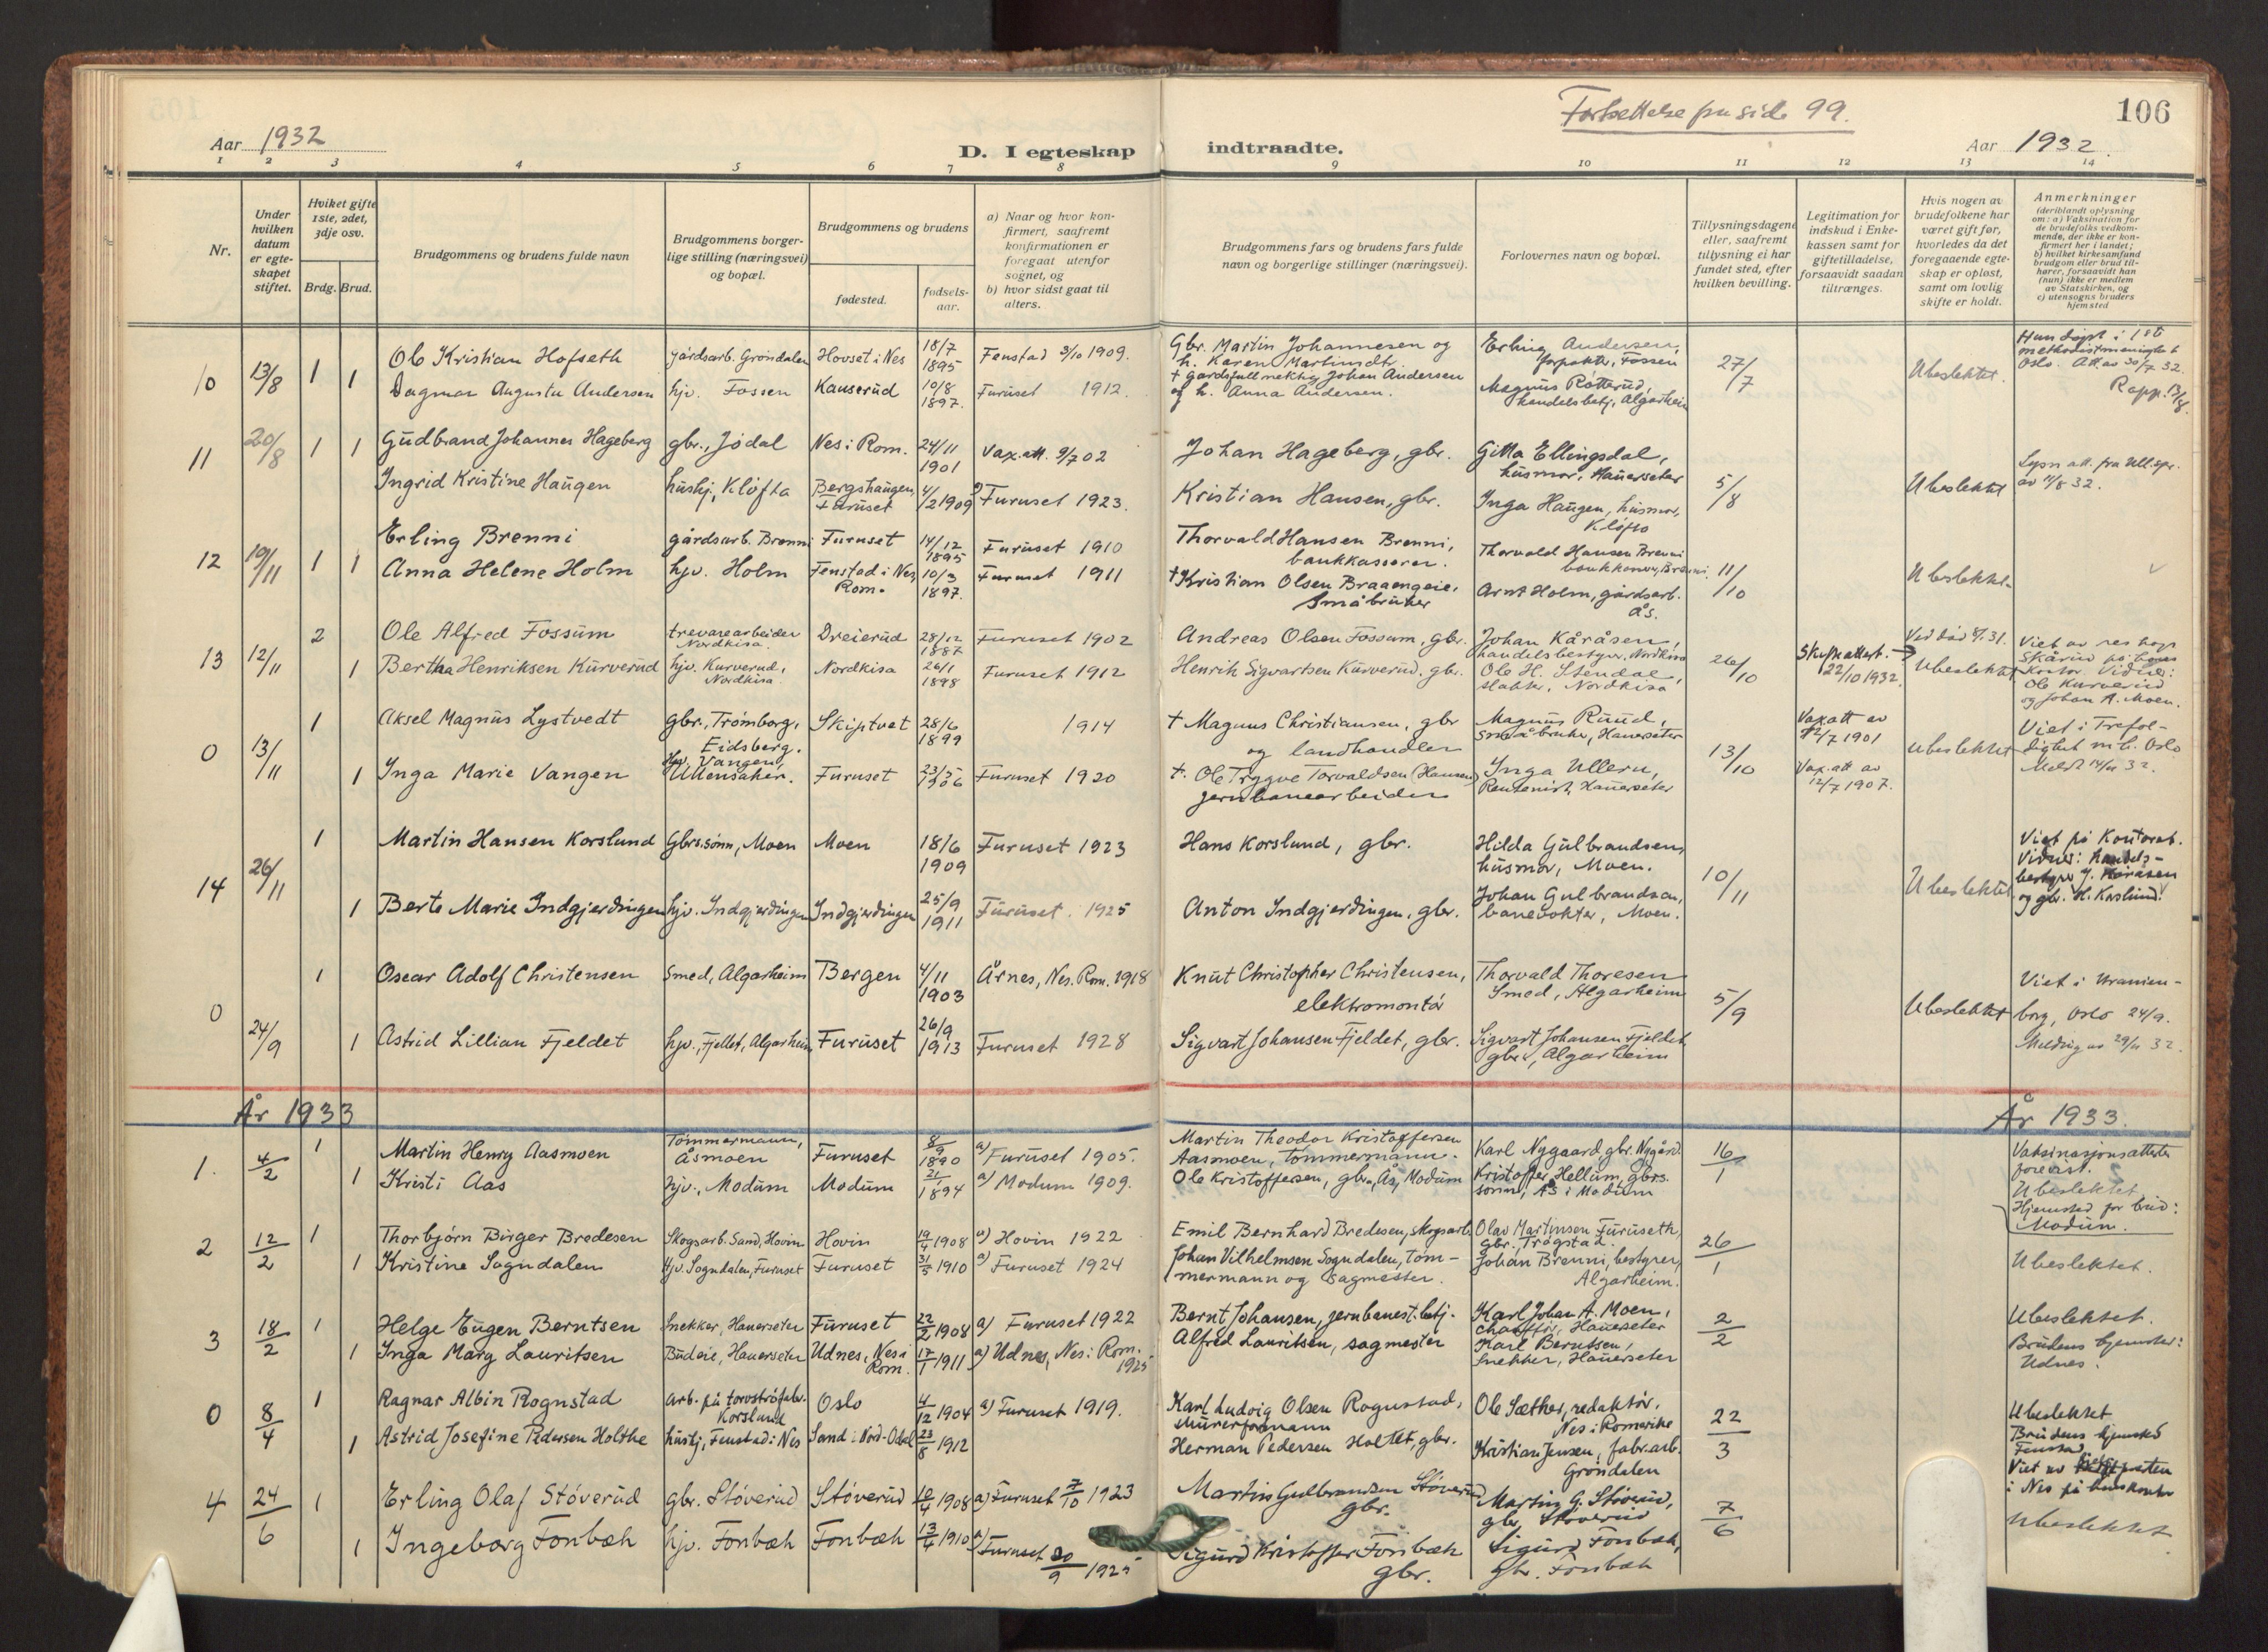 Fortsettelse på side 99.
106
Aar 1932
D. I egteskap indtraadte.
Aar 1932.
1 2 3 4 5 6 7 8 9 10 11 12 13 14
Nr.
Under hvilken datum er egteskapet stiftet.
Hviket gifte 1ste, 2det, 3dje osv.
Brdg. Brud.
Brudgommens og brudens fulde navn
Brudgommens borgerlige stilling (næringsvei) og bopæl.
Brudgommens og brudens
fødested.
fødselsaar.
a) Naar og hvor konfirmert, saafremt konfirmationen er foregaat utenfor sognet, og
b) hvor sidst gaat til alters.
Brudgommens fars og brudens fars fulde navn og borgerlige stillinger (næringsvei).
Forlovernes navn og bopæl.
Tillysningsdagene eller, saafremt tillysning ei har fundet sted, efter hvilken bevilling.
Legitimation for indskud i Enkekassen samt for giftetilladelse, forsaavidt saadan tiltrænges.
Hvis nogen av brudefolkene har været gift før, hvorledes da det foregaaende egteskap er opløst, samt om lovlig skifte er holdt.
Anmerkninger
(deriblandt oplysning om: a) Vaksination for de brudefolks vedkommende, der ikke er konfirmert her i landet; b) hvilket kirkesamfund brudgom eller brud tilhører, forsaavidt han (hun) ikke er medlem av Statskirken, og c) utensogns bruders hjemsted
10 13/8 1 Ole Kristian Hofseth gårdsarb. Gröndalen Hovset i Nes 18/7 1895 Fenstad 3/10 1909. Gbr. Martin Johannesen og h. Karen Martinsdtr. Erling Andersen, forpakter, Fossen 27/7 Ubeslektet. Hun døpt i 1ste methodistmenighet Oslo. Att. av 30/7 32. Rapp. 13/8.
1 Dagmar Augusta Andersen hjv. Fossen Kauserud 10/8 1897. Furuset 1912. † gårdsfullmektig Johan Andersen og h. Anna Andersen. Magnus Rotterud, handelsbetj. Algarheim
11 20/8 1 1 Gudbrand Johannes Hageberg gbr., Jödal Nes i Rom. 24/11 1901 Vax.att. 9/7 02 Johan Hageberg, gbr. Gitta Ellingsdal, husmor, Hauerseter
Ingrid Kristine Haugen hushj. Kløfta Bergshaugen, Furuset 4/2 1909 Furuset 1923. Kristian Hansen, gbr. Inga Haugen, husmor, Kløfta 5/8 Ubeslektet Lysn att. fra Ull.spr. av 11/8 32.
12 19/11 1 1 Erling Brenni gårdsarb. Brenni Furuset 14/12 1895 Furuset 1910 Thorvald Hansen Brenni, bankkasserer. Thorvald Hansen Brenni bankkasserer, Brenni
Anna Helene Holm hjv. Holm Fenstad i Nes, Rom. 10/3 1897. Furuset 1911 † Kristian Olsen Braaengeie, Småbruker Arnt Holm, gårdsarb. Ås. 11/10 Ubeslektet
13 12/11 2 Ole Alfred Fossum trevarearbeider Nordkisa. Dreierud 28/12 1887 Furuset 1902 Andreas Olsen Fossum, gbr. Johan Kåråsen, handelsbestyrer, Nordkisa 26/10 Skifteattest. 22/10 1932. Ved död Viet av res kap. Skårud på hans kontor. Vidner: Ole Kurverud og Johan A. Moen.
1 Bertha Henriksen Kurverud hjv. Kurverud, Nordkisa. Nordkisa 26/1 1898 Furuset 1912 Henrik Sigvartsen Kurverud. gbr. Ole H. Stendal, slakter, Nordkisa Ubeslektet
0 13/11 1 Aksel Magnus Lystvedt gbr., Trömborg, Eidsberg. Skiptvet 28/6 1899 1914 † Magnus Christiansen, gbr og landhandler Magnus Ruud, småbruker, Hauerseter 13/10 Vax.att av 12/7 1901 Ubeslektet Viet i Trefoldighet m.h. Oslo Meldt 14/11 32.
1 Inga Marie Vangen hjv. Vangen, Ullensaker. Furuset 23/5 1906 Furuset 1920 †. Ole Trygve Torvaldsen (Hansen) jernbanearbeider Inga Ullern, Rentenist, Hauerseter Vax.att av 12/7 1907.
14 26/11 1 Martin Hansen Korslund Gbrs.sönn, Moen Moen 18/6 1909 Furuset 1923 Hans Korslund, gbr. Hilda Gulbrandsen, husmor, Moen. 10/11 Viet på Kontoret. Vidner: Handelsbestyrer J. Kåråsen og gbr. H. Korslund.
1 Berte Marie Indgjerdingen hjv. Indgjerdingen Indgjerdingen 25/9 1911 Furuset. 1925 Anton Indgjerdingen, gbr. Johan Gulbrandsen, banevokter, Moen. Ubeslektet
0 24/9 1 Oscar Adolf Christensen Smed, Algarheim Bergen 4/11 1903 Årnes, Nes. Rom. 1918 Knut Christopher Christensen, elektromontör Thorvald Thoresen Smed, Algarheim 5/9 Ubeslektet Viet i Uranienborg, Oslo 24/9. Melding av 29/11 32.
1 Astrid Lillian Fjeldet hjv., Fjellet, Algarheim Furuset 26/9 1913 Furuset 1928 Sigvart Johansen Fjeldet, gbr. Sigvart Johansen Fjeldet gbr., Algarheim
År 1933 År 1933.
1. 4/2 1 Martin Henry Aasmoen Tömmermann, Åsmoen Furuset 8/9 1890 a) Furuset 1905. Martin Theodor Kristoffersen Aasmoen, tömmermann. Karl Nygaard gbr. Nygård. 16/1 Vaksinasjonsattester forevist. Ubeslektet. Hjemsted for brud: Modum.
1 Kristi Aas hjv., Modum Modum 21/1 1894 a) Modum 1909. Ole Kristoffersen, gbr., Ås, Modum Kristoffer Hellum, gbrs. sönn, Ås i Modum
2 12/2 1 Thorbjørn Birger Bredesen Skogsarb. Sand, Hovin Hovin 19/4 1908 a) Hovin 1922 Emil Bernhard Bredesen, skogsarb. Olav Martinsen Furuseth, gbr. Trögstad 26/1 Ubeslektet.
1 Kristine Sogndalen Hjv. Sogndalen, Furuset Furuset 31/5 1910 a) Furuset 1924 Johan Vilhelmsen Sogndalen, tömmermann og sagmester. Johan Brenni, bestyrer, Algarheim.
3 18/2 1 Helge Eugen Berntsen Snekker, Hauerseter Furuset 22/2 1908 a) Furuset 1922 Bernt Johansen, jernbanest.betj. Karl Johan A. Moen, chauffør, Hauerseter 2/2 Ubeslektet. Brudens hjemsted: Udnes.
1 Inga Marg Lauritsen Budeie, Hauerseter Udnes, Nes i Rom. 17/1 1911 a) Udnes, Nes i Rom. 1925 Alfred Lauritsen, sagmester Karl Berntsen, Snekker, Hauerseter
0 8/4 1 Ragnar Albin Rognstad arb. på torvströfabr. Korslund Oslo 4/12 1904 a) Furuset 1919. Karl Ludvig Olsen Rognstad, murerformann Ole Sæther, redaktör, Nes i Romerike 22/3 Ubeslektet Brudens hjemsted Fenstad Viet av presten i Nes på hans kontor
1 Astrid Josefine Pedersen Holthe hushj, Fenstad i Nes Sand i Nord-Odal 23/8 1912 Herman Pedersen Holtet, gbr. Kristian Jensen, fabr.arb. Gröndalen
4 24/6 1 Erling Olaf Stöverud gbr. Stöverud Stöverud 10/4 1908 a) Furuset 7/10 1923 Martin Gulbrandsen Stöverud gbr. Martin G. Stöverud, gbr. Stöverud 7/6 Ubeslektet
1 Ingeborg Fonbæk hjv. Fonbæk Fonbæk 13/4 1910 a) Furuset 20/9 1925 Sigurd Kristoffer Fonbæk gbr. Sigurd Fonbæk, gbr. Fonbæk